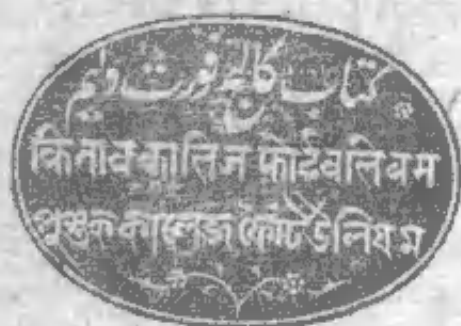 کتاب کالج فورت ولیم
किताब कालिज फोर्टवलियम
পুস্তক কালেজ ফোর্ট উলিয়ম